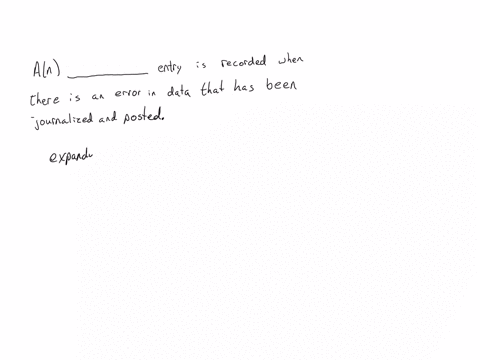 A(n) __________ entry is recorded when
there is an error in data that has been
journalized and posted.
expand